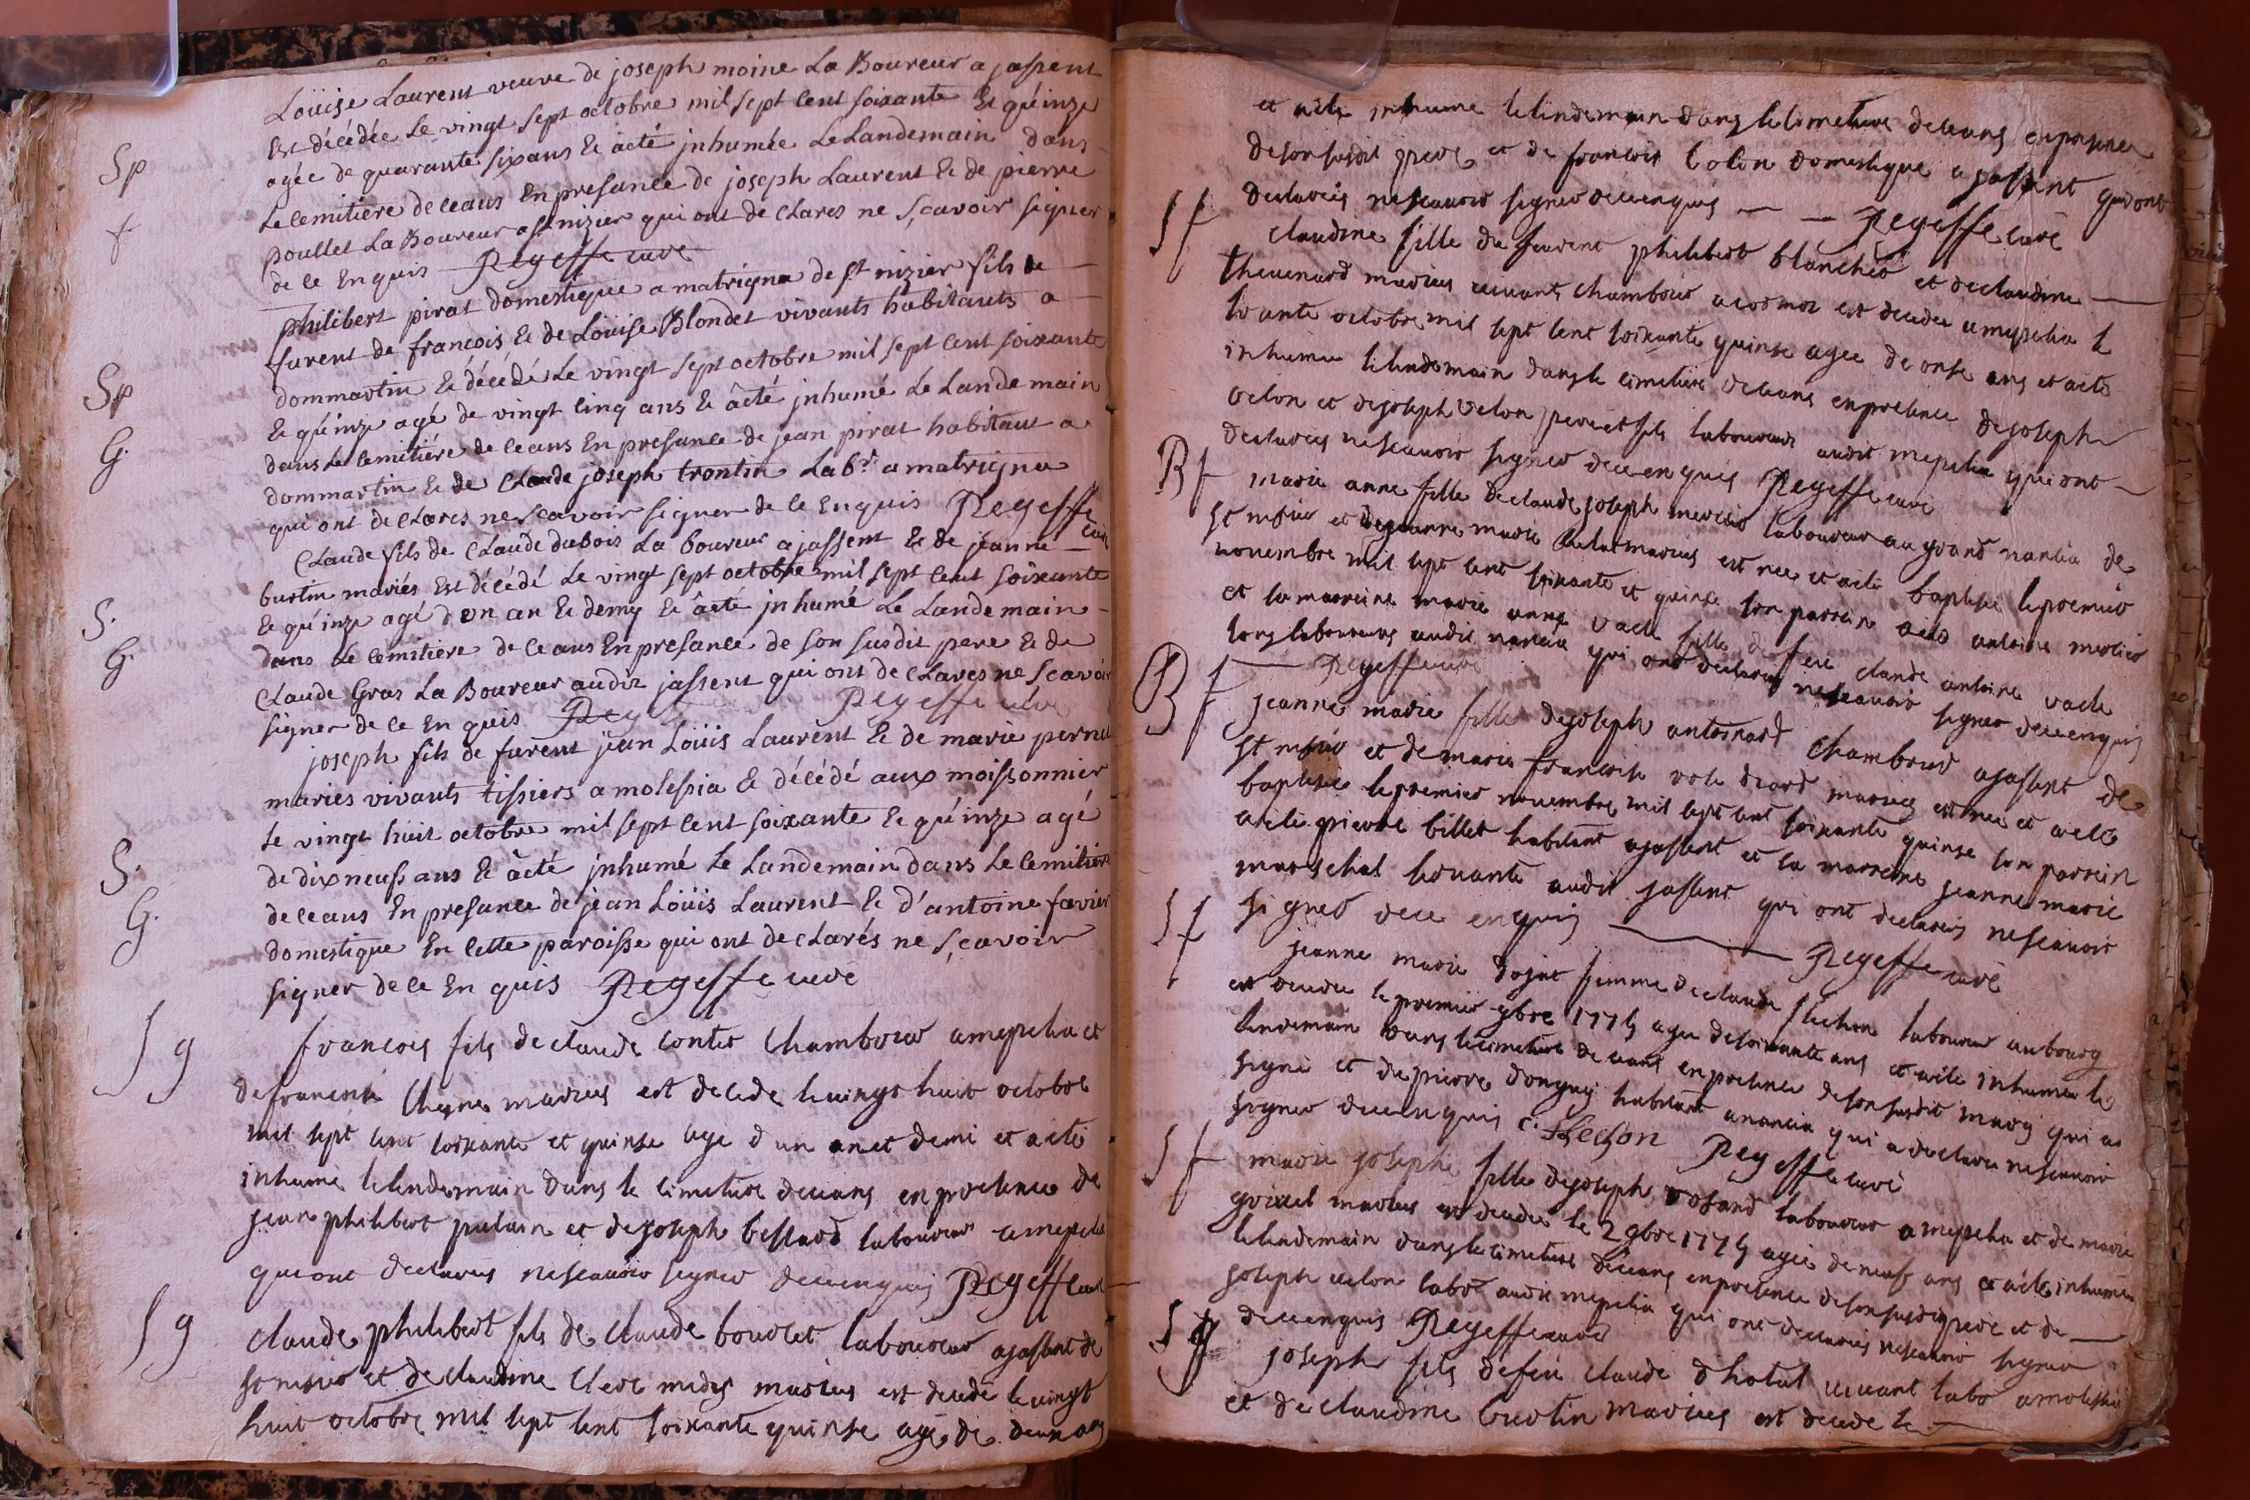 Loüise Laurent veuve de joseph moine La Boureur a jassent
Est décédée Le vingt sept octobre mil sept Cent soixante Et quinze
agée de quarante six ans Et àeté jnhumée Le Landemain dans
Sp
Le Cemitiére de Ceans En presance de joseph Laurent Et de pierre
f
poullet La Boureur a st nizier qui ont de Clares ne sçavoir signer
de Ce Enquis Regeffe curé
philibert pirat domestique a matrigna de st nizier fils de
furent de francois Et de Loüise Blondet vivants habitants a
dommartin Et décédé Le vingt sept octobre mil sept Cent soixante
Sp
Et quinze agé de vingt Cinq ans Et àeté jnhumé Le Landemain
dans Le Cemitiére de Ceans En presance de jean pirat habitant a
G.
dommartin Et de Claude joseph trontin Labr a matrigna
qui ont de Clares ne Scavoir signer de Ce Enquis Regeffe curé
Claude fils de Claude dubois La boureur a jassent Et de jeanne
burtin mariés Est décédé Le vingt sept octobre mil sept Cent soixante
S.
Et quinze agé d'un an Et demy Et àeté jnhumé Le Landemain
dans Le Cemitiére de Ceans En presance de son susdit pere Et de
G.
Claude Gras La Boureur audit jassent qui ont de Clares ne Scavoir
signer de Ce En quis Reg Regeffe curé
joseph fils de furent jean Loüis Laurent Et de marie pernet
maries vivants tissiers a molessia Et décédé aux moissonnier
Le vingt huit octobre mil sept Cent soixante Et quinze agé
S.
de dix neuf ans Et àeté jnhumé Le Landemain dans Le Cemitiére
de Ceans En presance de jean Loüis Laurent Et d'antoine favier
G.
domestique En Cette paroisse qui ont de Clarés ne sçavoir
signer de Ce En quis Regeffe curé
S g
francois fils de claude contet Chambour a mepilia et
de francoise Chesne maries est decede le vingt huit octobre
mil sept cent soixante et quinse age d un an et demi et a ete
inhume le lindemain dans le cimetiere de ceans en presence de
jean philibert putain et de joseph bessard laboureur a mepilia
qui ont declares ne scauoir signer de ce enquis Regeffe curé
S g
claude philibert fils de claude bourlet laboureur a jassent de
st nisier et de claudine Clerc midy maries est decede le vingt
huit octobre mil sept cent soixante quinse age de deux ans
et a ete inhume le lindemain dans le cimetiere de ceans en presence
de son susdit pere et de francois Colon domestique a jassent qui ont
declares ne scauoir signer de ce enquis Regeffe curé
S f
claudine fille de furent philibert blanchet et de claudine
theuenard maries viuants chambour a cormoz est decedee a mepilia le
trante octobre mil sept cent soixante quinse agee de onse ans et a ete
inhumee le lindemain dans le cimetiere de ceans en presence de joseph
velon et de joseph velon pere et fils laboureurs audit mepilia qui ont
declares ne scauoir signer de ce enquis Regeffe curé
B f
marie anne fille de claude joseph mercier laboureur au grand nancia de
st nisier et de jeanne marie maries est nee et a ete baptisee le premier
nouembre mil sept cent soixante et quinse son parrein a ete antoine mercier
et la marreine marie anne vacle fille de feu claude antoine vacle
tous laboureurs audit nancia qui ont declares ne scauoir signer de ce enquis
Regeffe curé
B f
jeanne marie fille de joseph antoinard chambour a jassent de
st nisier et de marie francoise maries est nee et a ete
baptisee le premier nouembre mil sept cent soixante quinse son parrein
a ete pierre billet habitant a jassent et la marreine jeanne marie
mareschal seruante audit jassent qui ont declares ne scauoir
signer de ce enquis Regeffe curé
S f
jeanne marie dojat femme de claude flechon laboureur au bourg
est decedee le premier 9bre 1775 agee de soixante ans et a ete inhumee le
lindemain dans le cimetiere de ceans en presence de son susdit mary qui a
signé et de pierre donguy habitant a nancia qui a declare ne scauoir
signer de ce enquis C. flechon Regeffe curé
S f
marie josephe fille de joseph rosand laboureur a mepilia et de marie
maries est decedee le 2 9bre 1775 agée de neuf ans et a ete inhumee
le lindemain dans le cimetiere de ceans en presence de son susdit pere et de
joseph velon labor audit mepilia qui ont declares ne scauoir signer
de ce enquis Regeffe curé
S g
joseph fils de feu claude d hotal viuant labor a molessia
et de claudine burtin maries est decede le